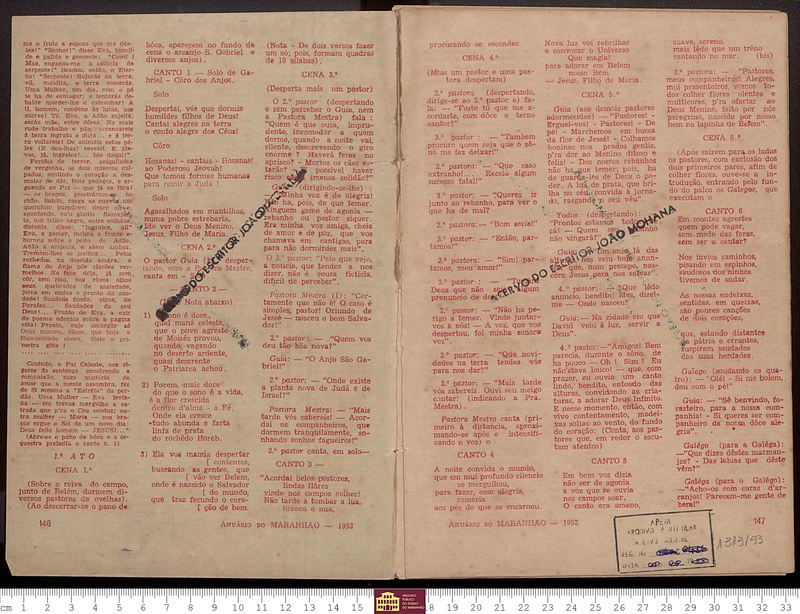 me o fruto a esposa que me dés-
tes!" "Senhor!" disse Eva, humil-
de e palida e gemente: "Comi!
Mas, enganou-me a astúcia da
serpente!" Bradou, então, o Eter-
no: "Serpente! Rojarás na terra,
vil, maldita, e terra comerás.
Uma Mulher, um dia, com o pé
te ha de esmagar; e tentarás de-
balde morder-lhe o calcanhar! A
ti, homem, condeno às lidas, aos
suores! Tú, Eva, a Adão sujeita,
serás mãe, entre dôres. No mais
rude trabalho o pão arrancareis
á terra ingrata e dura... e á ter-
ra voltareis! De animais estas pe-
les
Perdidos de terror, aniquilados
de vergonha, os dois miseros cul-
pados, sentindo o coração a des-
maiar de dôr, feito pedaços, e er-
guendo ao Pai — que já se fôra!
— os braços, prostraram-se no
chão. Subito, rasga as nuvens um
querubim purpúreo; desce e,
apontando, co'o gladio flamejan-
te, um trilho negro, entre sarças
distante, disse: "Ingratos, ide!"
Eva, a gemer, inclina a fronte e
Contudo, o Pai Celeste, aos ri-
gores da sentença envolvendo a
compaixão, num mistério de
amor que a mente assombra, faz
de Si mesmo a "Estrêla" do per-
dão. Uma Mulher — Eva invia-
da — em travas mergulha a es-
trada que p'ra o Céu conduz; ou-
tra mulher — Maria — nos bra-
ços ergue o Sol de um novo dia:
Deus feito homem — JESUS!..."
(Abre-se o pano de bôca e a or-
questra preludia o canto n. 1)
1.º ATO
CENA 1.ª
(Sobre a relva do campo,
junto de Belém, dormem di-
versos pastores de ovelhas).
(Ao descerrar-se o pano de
146
bôca, aparecem no fundo da
cena o arcanjo S. Gabriel e
diversos anjos).
CANTO 1 — Solo de Ga-
briel - Côro dos Anjos.
Solo
Despertai, vós que dormis
humildes filhos de Deus!
Cantai alegres na terra
o canto alegre dos Céus!
Côro
Hosanas! - cantais - Hosanas!
ao Poderoso Jeovah!
Que tomou formas humanas
para remir a Judá!
Solo
Agasalhados em mantilhas
numa pobre estrebaria,
Ide ver o Deus Menino,
Jesus, Filho de Maria.
CENA 2.ª
O pastor Guia desper-
tando, com a Pastora Mestra,
canta em
CANTO 2 —
(Vide Nota abaixo)
1) O sono é doce,
qual maná celeste,
que o povo agreste
de Moisés provou,
quando, vagando
no deserto ardente,
quasi descrente
o Patriarca achou.
2) Porem, mais doce
do que o sono é a vida,
é a flor crecida
dentro d'alma - a Fé!
Onde ela cresce
tudo abunda e farta
linfa de prata
do rochêdo Horeb.
3) Ela vos manda despertar
[ contentes,
buscando as gentes, que
[ vão ver Belem,
onde é nascido o Salvador
[ do mundo,
que traz fecundo o cora-
[ ção de bem.
(Nota - De dois versos fazer
um só; pois, formam quadras
de 10 silabas).
CENA 3.ª
(Desperta mais um pastor)
O 2.º pastor (despertando
e sem perceber o Guia, nem
a Pastora Mestra) fala:
"Quem é que ousa, impru-
dente, incomodar a quem
dorme, quando a noite vai,
silente, descrevendo o giro
enorme? Haverá feras no
aprisco? - Mortos os cães es-
tarão? Será possivel haver
(dirigindo-se-lhe):
minha voz é de alegria!
não ha, pois, de que temer.
Ninguem geme de agonia —
rebanho ou pastor siquer.
Era minha voz amiga, cheia
de amor e de paz, que vos
chamava em cantigas, para
para não dormirdes mais".
O 2.º pastor: "Pelo que vejo,
a noticia, que tendes a nos
dizer, não é cousa ficticia,
dificil de perceber".
Pastora Mestra (1): "Cer-
tamente que não é! O caso é
simples, pastor! Oriundo de
Jessé — nasceu o bom Salva-
dor!"
2.º pastor: — "Quem vos
deu tão bôa nova?"
Guia: — "O Anjo São Ga-
briel!"
2.º pastor: — "Onde existe
a planta nova de Judá e de
Israel?"
Pastora Mestra: — "Mais
tarde vós sabereis! — Acor-
dai os companheiros, que
dormem tranquilamente, so-
nhando sonhos fagueiros!"
2.º pastor canta, em solo —
CANTO 3 —
"Acordai belos pastores,
lindas flôres
vinde nos campos colher!
Não tarde a tombar a lua,
branca e nua,
ANUÁRIO DO MARANHÃO — 1952
procurando se esconder.
CENA 4.ª
(Mais um pastor e uma pas-
tora despertam)
2.ª pastora (despertando,
dirige-se ao 3.º pastor e) fa-
la: — "Foste tú que me a-
cordaste, com dôce e terno
cantar?"
3.º pastor: — "Tambem
procuro quem seja que o sô-
no me fez deixar!"
2.ª pastora: — "Que caso
extranho!... Receio algum
sucesso fatal!"
3.º pastor: — "Queres ir
junto ao rebanho, para ver o
que ha de mal?
2.ª pastora: — "Bom seria!"
3.º pastor: — "Então, par-
tamos!"
2.ª pastora: — "Sim! par-
tamos, meu amor!"
3.º pastor:
Deus que não seja algum
prenuncio de dor!"
2.º pastor: — "Não ha pe-
rigo a temer. Vinde juntar-
vos a nós! — A voz, que vos
despertou, foi minha sonora
voz".
3.º pastor: — "Que novi-
dades na terra tendes vós
para nos dar?"
2.º pastor: — "Mais tarde
vós sabereis. Ouvi seu meigo
cantar! (indicando a Pra.
Mestra).
Pastora Mestra canta (pri-
meiro à distancia, aproxi-
mando-se após e intensifi-
cando a voz) o —
CANTO 4
A noite convida o mundo,
que em mui profundo silencio
se mergulhou,
para fazer, com alegria,
romaria
aos pés do que se encarnou.
Nova luz voi rebrilhar
e convocar o Universo
Que magia!
para adorar em Belem
nosso Bem
— Jesus, Filho de Maria.
CENA 5.ª
Guia (aos demais pastores
adormecidos) — "Pastores! -
Erguei-vos! - Pastoras! - De
pé! - Marchemos em busca
da flor de Jessé! - Colhamos
boninas nos prados gentis,
p'ra dar ao Menino ditoso e
feliz! - Dos nossos rebanhos
não ha que temer; pois, ha
de guarda-los de Deus o po-
der. A lua de prata, que bri-
lha no céu, convida á jorna-
da, rasgando o seu véu".
Todos (despertando):
Prontos estamos todos
cá! — Quem seu sonho
não vingará?"
4.º pastor: "Que lêdo
anuncio, bendito! Mas, dizei-
me — Onde nasceu?
Guia: — Na cidade em que
David veiu á luz, servir a
Deus".
4.º pastor: — "Amigos! Bem
parecia, durante o sôno, de
ha pouco — Oh! Sim! Eu
não'stava louco! — que, com
prazer, eu ouvia um canto
lindo, bendito, entoado das
alturas, convidando as cria-
turas, a adorar Deus Infinito.
E nesse momento, então, com
vivo contentamento, madei-
xas soltas ao vento, do fundo
do coração: (Canta, aos pas-
tores que, em redor o escu-
tam atentos)
CANTO 5
Em bem vos dizia
não ser de agonia
a voz que se ouvia
nos campos soar.
O canto era ameno,
suave, sereno,
mais lêdo que um trêno
cantando no mar. (bis)
3.ª pastora: — "Pastores,
meus companheiros! Alegres,
mui prasenteiros, vamos to-
dos colher flores olentes e
multicores, p'ra ofertar ao
Deus Menino, feito por nós
peregrino, nascido por nosso
bem na lapinha de Belem".
CENA 6.ª
(Após sairem para os lados
os pastores, com exclusão dos
dois primeiros pares, afim de
colher flores, ouve-se a in-
trodução, entrando pelo fun-
do do palco os Galegos, que
executam o
CANTO 6
Em montes agrestes
quem póde vagar,
sem medo das feras,
sem ser a cantar?
Nos invios caminhos,
pisando em espinhos,
saudosos dos ninhos
tivemos de andar.
As nossas endeixas,
sentidas, em queixas,
são pobres canções
de dois corações,
que, estando distantes
da pátria e errantes,
suspiram saudades
das suas herdades.
Galego (saudando os qua-
tro): — "Olé! - Si me bolem,
dou com o pé!"
Guia: — "Sê benvindo, fo-
rasteiro, para a nossa com-
panhia! - Si queres ser com-
panheiro da nossa dôce ale-
gria".
Galêgo (para a Galêga):
—"Que dizes dêstes marman-
jos? - Das labias que dêste
vêm?"
Galêga (para o Galego):
—"Acho-os com caras d'ar-
canjos! Parecem-me gente de
bem!"
ANUÁRIO DO MARANHÃO — 1952
147
ACERVO DO ESCRITOR JOÃO MOHANA
DO ESCRITOR JOÃO
APEM
REG. No
DATA
A313/93
cm 1 2 3 4 5 6 7 8 9 10 11 12 13 14 15
18 19 20 21 22 23 24 25 26 27 28 29 30 31 32 33
ARQUIVO
PÚBLICO
DO ESTADO
DO MARANHÃO